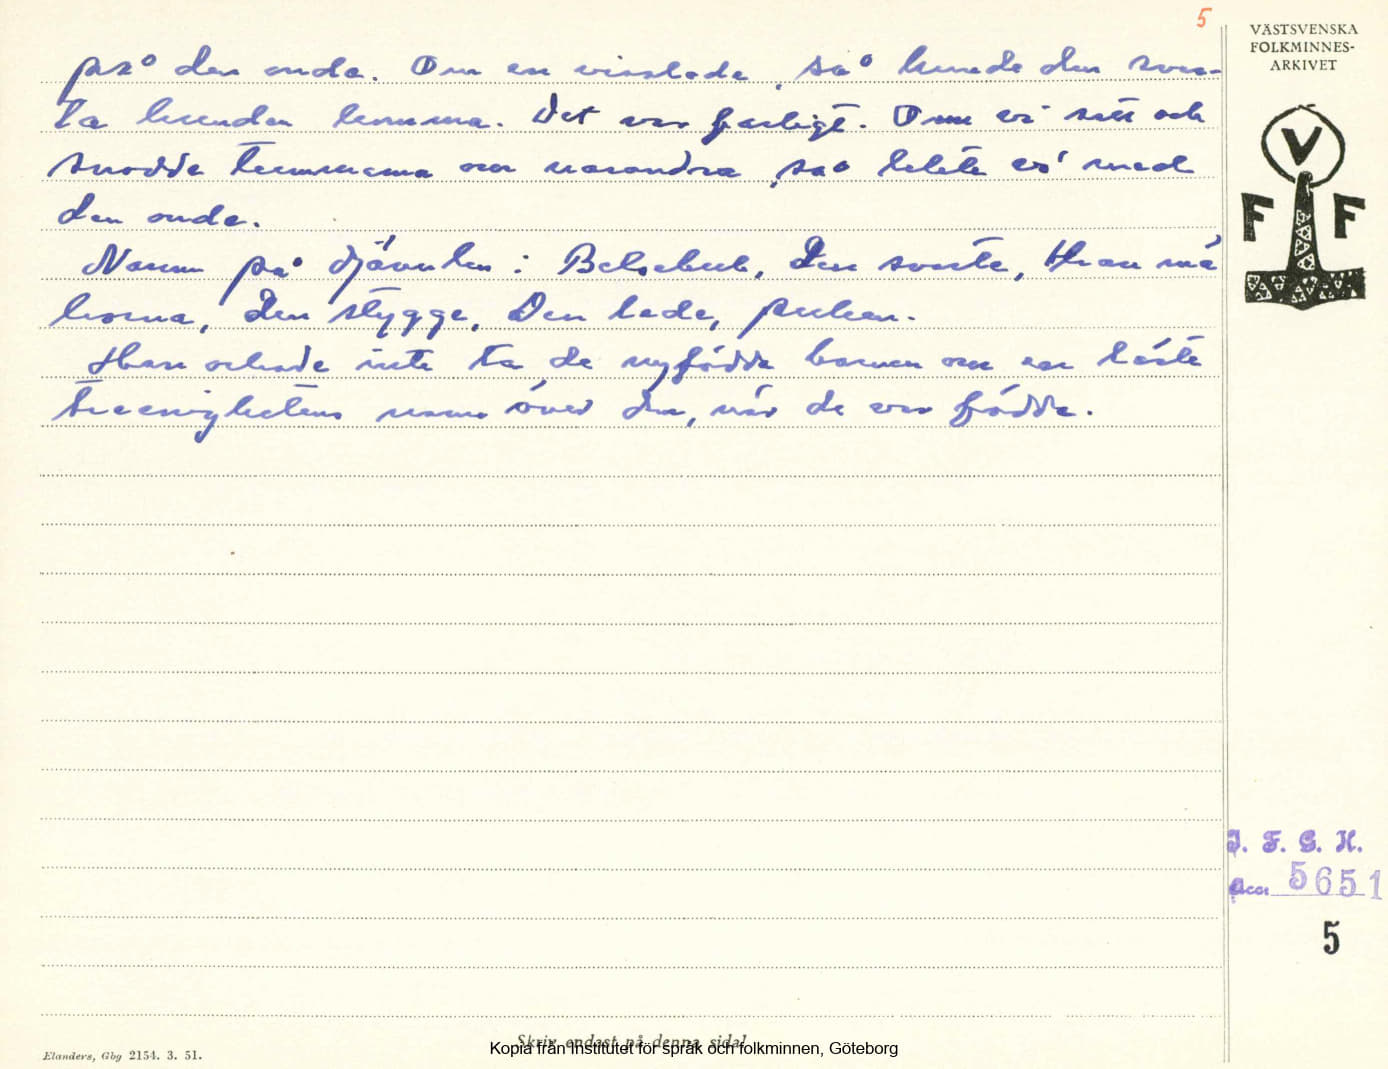 5
VÄSTSVENSKA
FOLKMINNES-
ARKIVET
på den onda. Om en visslade så kunde den svar-
ta hunden komma. Det var farligt. Om vi satt och
snodde tummarna om varandra så lekte vi med
den onde.
Namn på djävulen: Belsebub, Den svarte, Han må
horna, Den stygge, Den lede, puken.
Han orkade inte ta de nyfödda barnen om en läste
treenighetens namn över den, när de var födda.
V
F F
I. F. G. H.
Acc. 5651
5
Skriv endast på denna sida!
Kopia från Institutet för språk och folkminnen, Göteborg
Elanders, Gbg 2154. 3. 51.